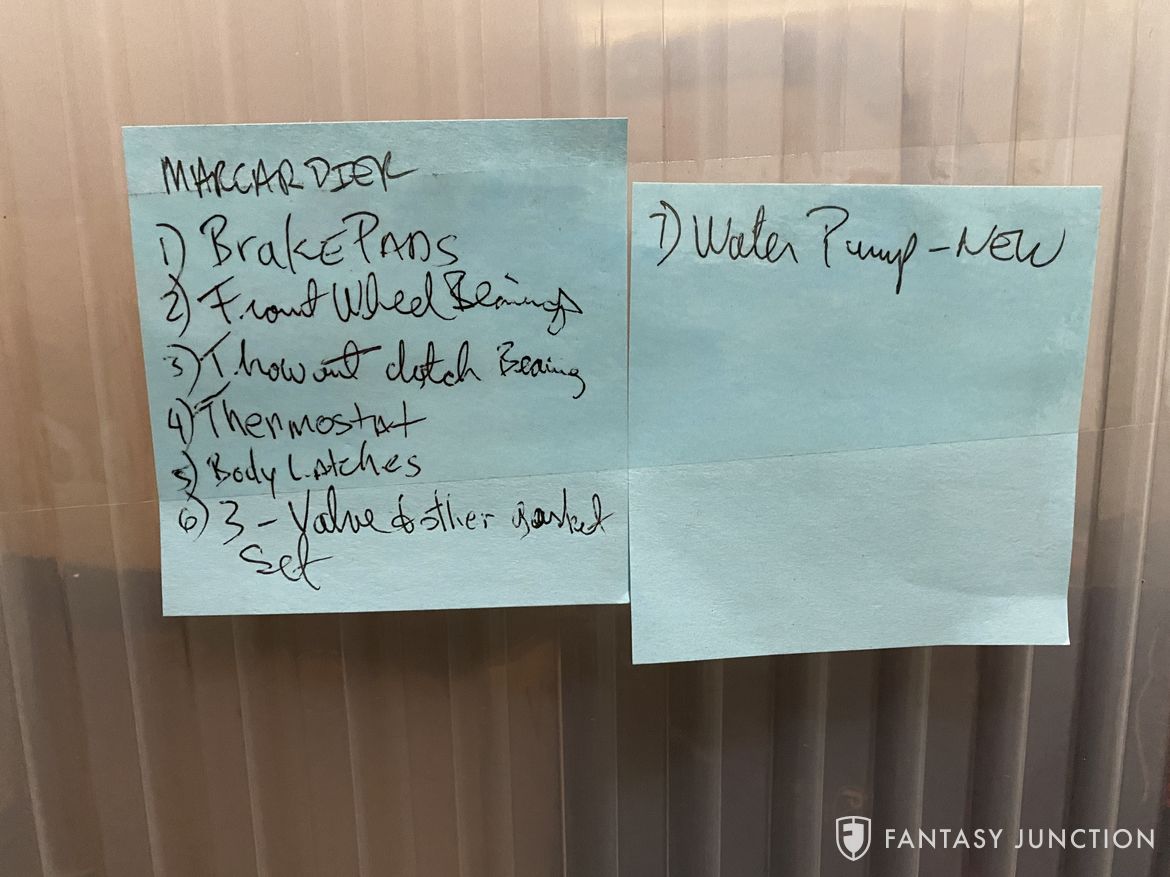 MARCARDIER
1) Brake PADS
2) Front Wheel Bearings
3) Throw out clutch Bearing
4) Thermostat
5) Body Latches
6) 3 - Valve & other gasket
Set
7) Water Pump - NEW
FANTASY JUNCTION